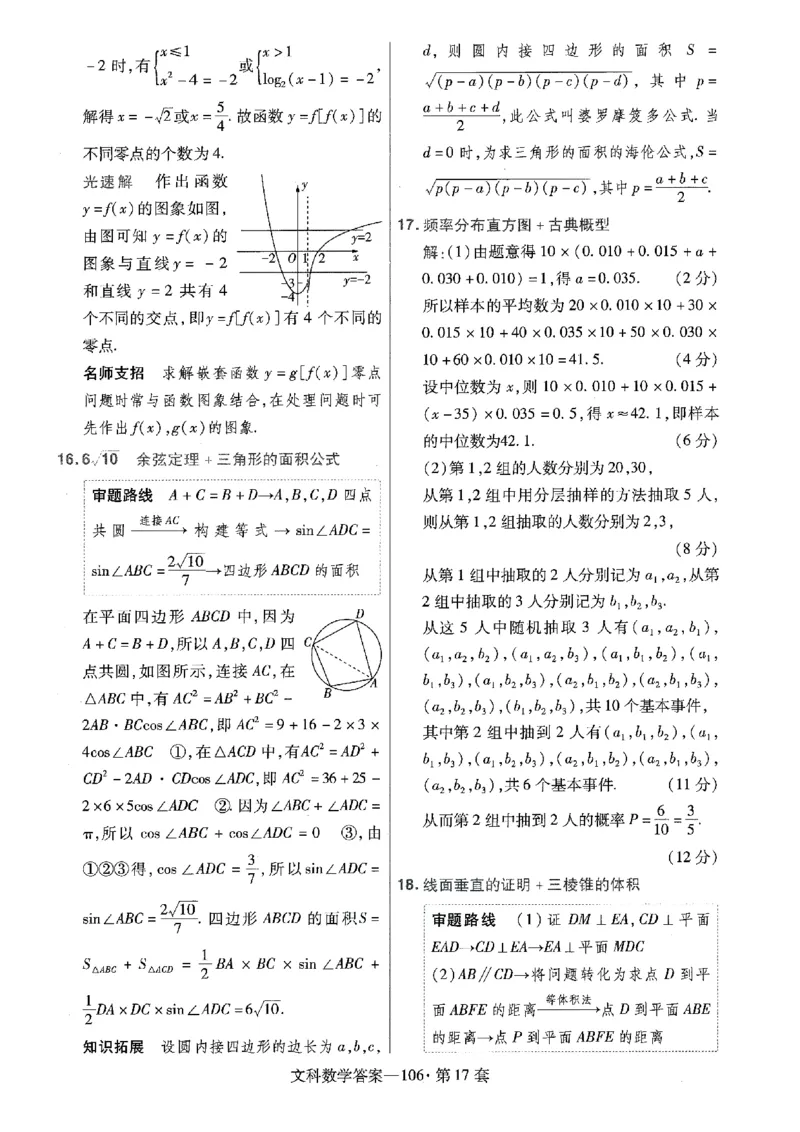 -2时,有{x≤1 x²-4=-2 或{x>1 log₂(x-1)=-2,
解得x=-√2或x=5/4. 故函数y=f[f(x)]的
不同零点的个数为4.
光速解 作出函数
y=f(x)的图象如图,
由图可知y=f(x)的
图象与直线y=-2
和直线y=2共有4
y
y=2
-2 O 1 2 x
-3
-4
y=-2
个不同的交点,即y=f[f(x)]有4个不同的
零点.
名师支招 求解嵌套函数y=g[f(x)]零点
问题时常与函数图象结合,在处理问题时可
先作出f(x),g(x)的图象.
16.6√10 余弦定理+三角形的面积公式
审题路线 A+C=B+D→A,B,C,D四点
共圆 连接AC→ 构建等式→sin∠ADC=
sin∠ABC=2√10/7→四边形ABCD的面积
在平面四边形ABCD中,因为
A+C=B+D,所以A,B,C,D四
点共圆,如图所示,连接AC,在
△ABC中,有AC²=AB²+BC²-
D
C
B
A
2AB·BCcos∠ABC,即AC²=9+16-2×3×
4cos∠ABC ①,在△ACD中,有AC²=AD²+
CD²-2AD·CDcos∠ADC,即AC²=36+25-
2×6×5cos∠ADC ②.因为∠ABC+∠ADC=
π,所以cos∠ABC+cos∠ADC=0 ③,由
①②③得,cos∠ADC=3/7,所以sin∠ADC=
sin∠ABC=2√10/7. 四边形ABCD的面积S=
S△ABC+S△ACD=1/2BA×BC×sin∠ABC+
1/2DA×DC×sin∠ADC=6√10.
知识拓展 设圆内接四边形的边长为a,b,c,
d,则圆内接四边形的面积S=
√(p-a)(p-b)(p-c)(p-d),其中p=
a+b+c+d/2,此公式叫婆罗摩笈多公式.当
d=0时,为求三角形的面积的海伦公式,S=
√p(p-a)(p-b)(p-c),其中p=a+b+c/2.
17.频率分布直方图+古典概型
解:(1)由题意得10×(0.010+0.015+a+
0.030+0.010)=1,得a=0.035. (2分)
所以样本的平均数为20×0.010×10+30×
0.015×10+40×0.035×10+50×0.030×
10+60×0.010×10=41.5. (4分)
设中位数为x,则10×0.010+10×0.015+
(x-35)×0.035=0.5,得x≈42.1,即样本
的中位数为42.1. (6分)
(2)第1,2组的人数分别为20,30,
从第1,2组中用分层抽样的方法抽取5人,
则从第1,2组抽取的人数分别为2,3,
(8分)
从第1组中抽取的2人分别记为a₁,a₂,从第
2组中抽取的3人分别记为b₁,b₂,b₃.
从这5人中随机抽取3人有(a₁,a₂,b₁),
(a₁,a₂,b₂),(a₁,a₂,b₃),(a₁,b₁,b₂),(a₁,
b₁,b₃),(a₁,b₂,b₃),(a₂,b₁,b₂),(a₂,b₁,b₃),
(a₂,b₂,b₃),(b₁,b₂,b₃),共10个基本事件,
其中第2组中抽到2人有(a₁,b₁,b₂),(a₁,
b₁,b₃),(a₁,b₂,b₃),(a₂,b₁,b₂),(a₂,b₁,b₃),
(a₂,b₂,b₃),共6个基本事件. (11分)
从而第2组中抽到2人的概率P=6/10=3/5.
(12分)
18.线面垂直的证明+三棱锥的体积
审题路线 (1)证DM⊥EA,CD⊥平面
EAD→CD⊥EA→EA⊥平面MDC
(2)AB∥CD→将问题转化为求点D到平
面ABFE的距离 等体积法→点D到平面ABE
的距离→点P到平面ABFE的距离
文科数学答案—106·第17套